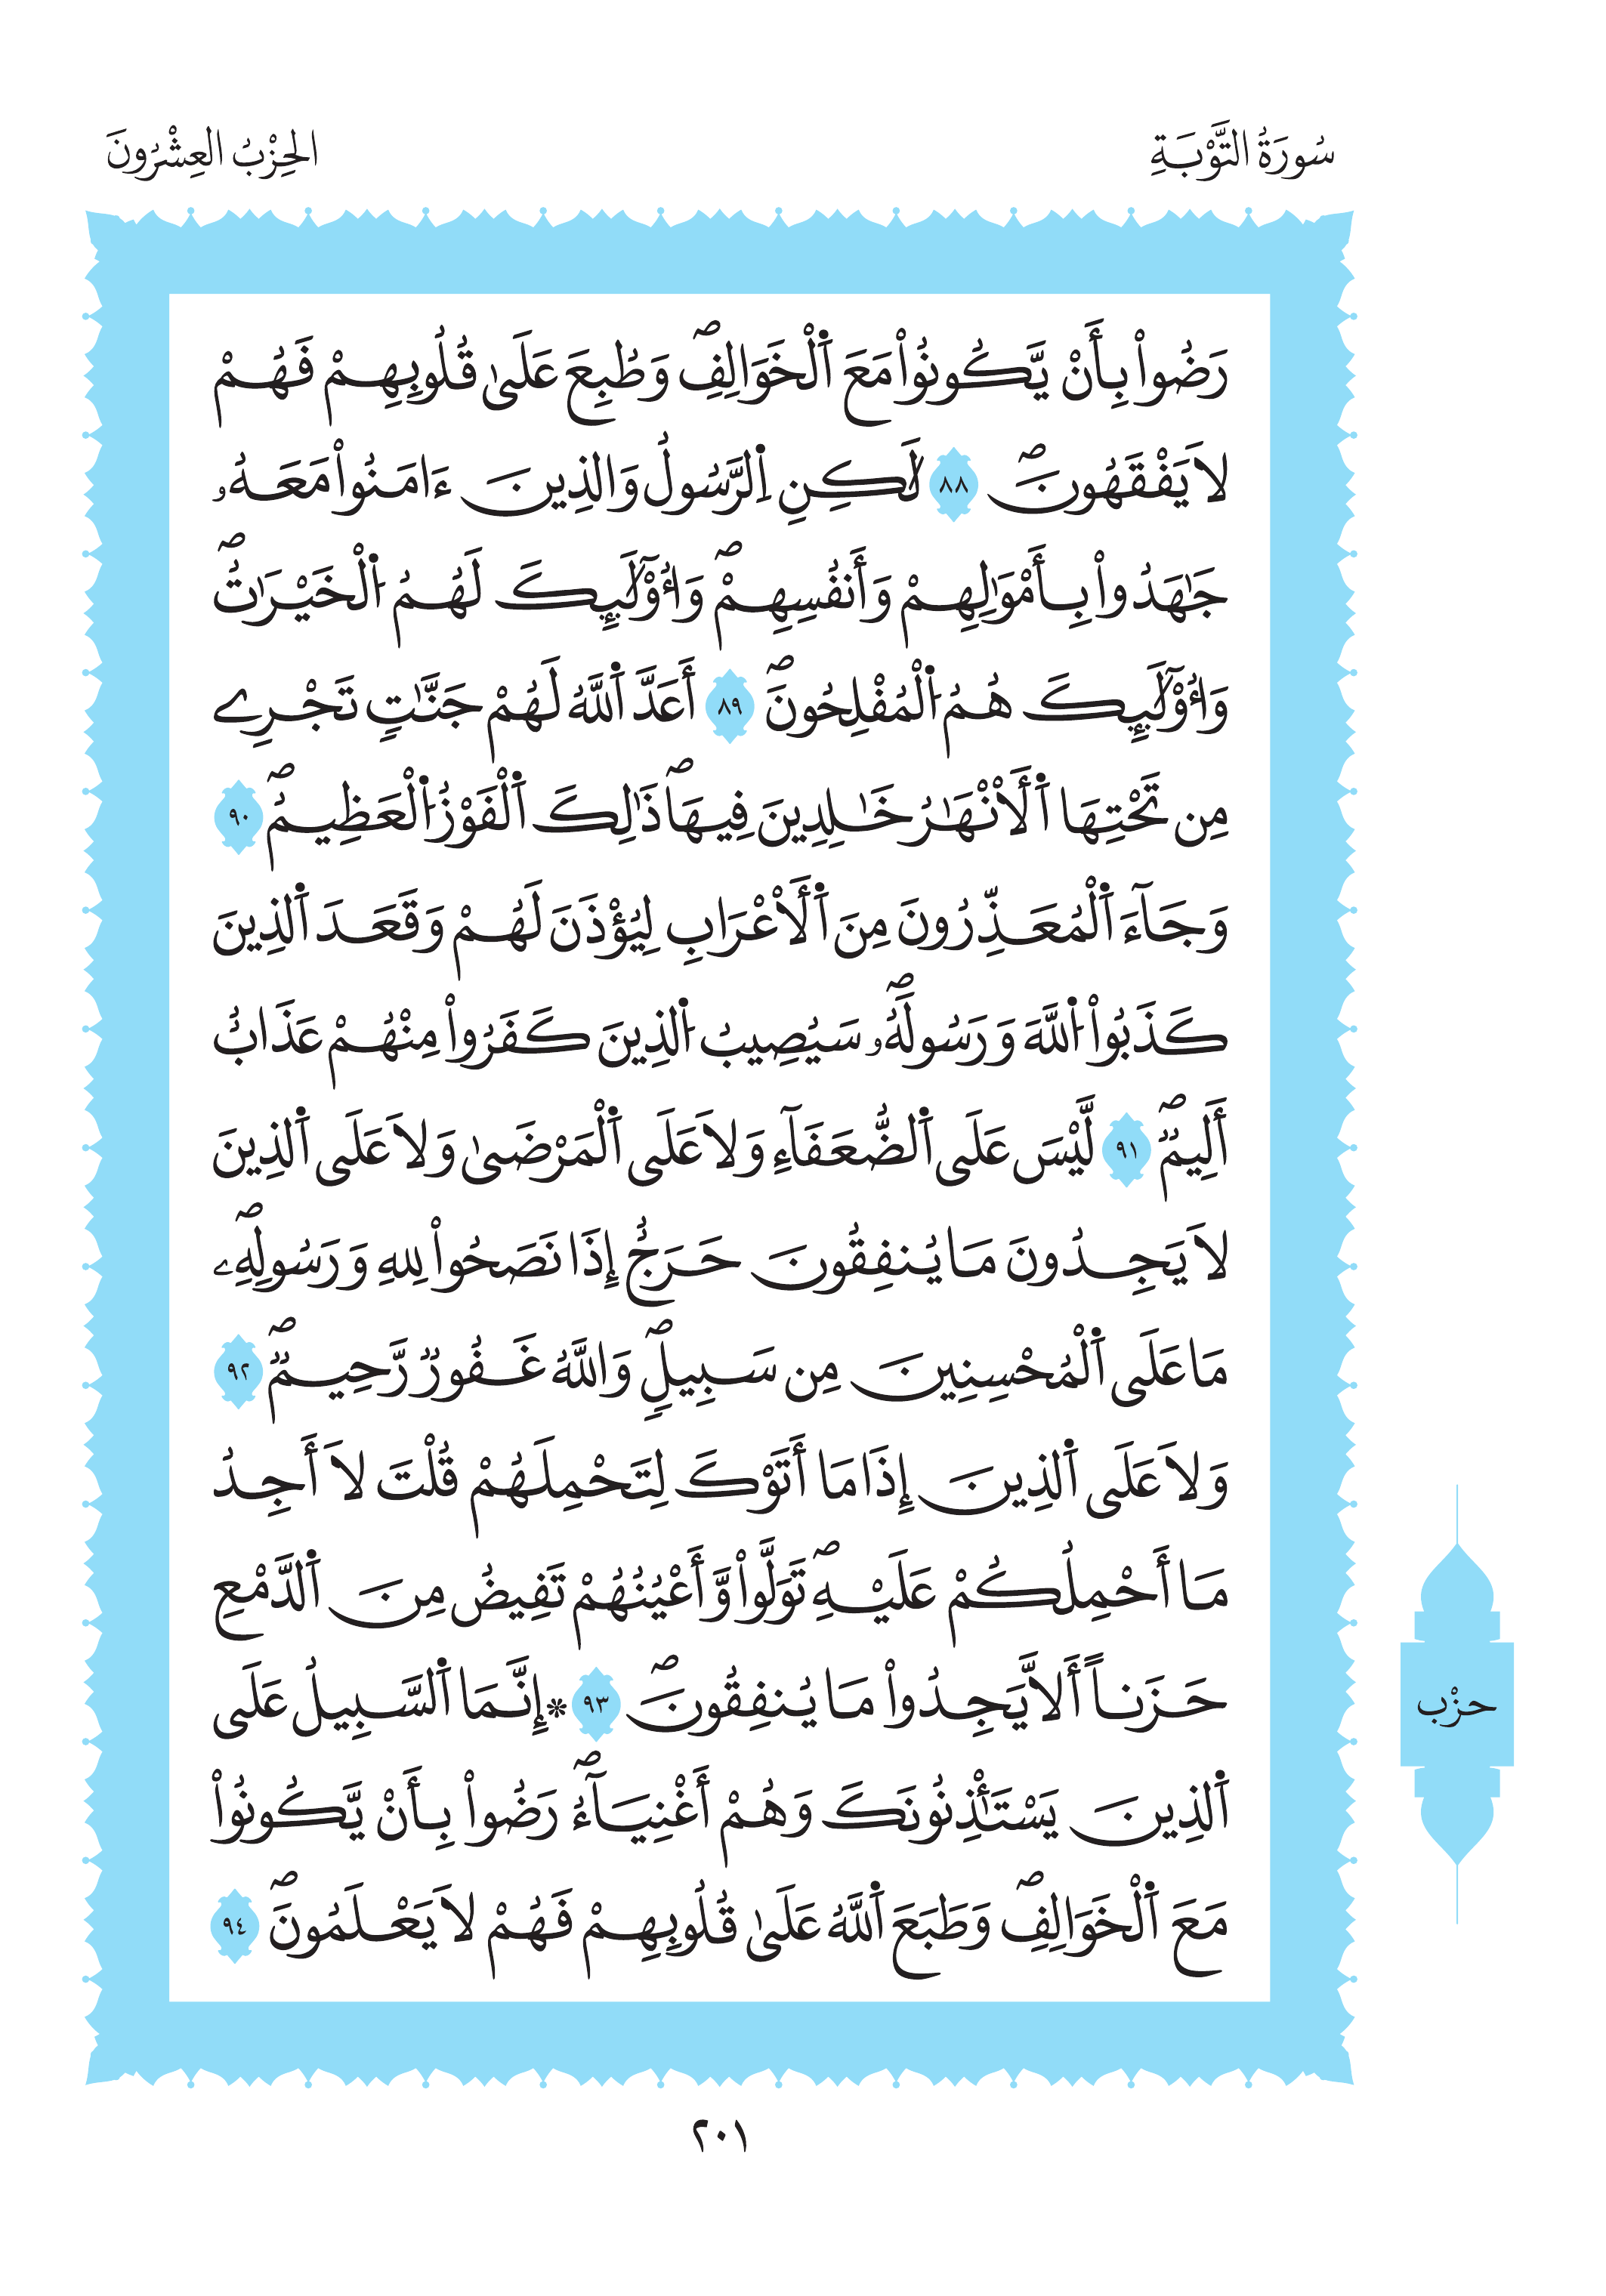 سُورَةُ التَّوْبَةِ
الحِزْبُ العِشْرُونَ
رَضُواْ بِأَنْ يَّكُونُواْ مَعَ اَ۬لْخَوَالِفِۖ وَطُبِعَ عَلَىٰ قُلُوبِهِمْ فَهُمْ
لَا يَفْقَهُونَۖ ٨٨ لَٰكِنِ اِ۬لرَّسُولُ وَالذِينَ ءَامَنُواْ مَعَهُۥ
جَٰهَدُواْ بِأَمْوَٰلِهِمْ وَأَنفُسِهِمْۖ وَأُوْلَٰٓئِكَ لَهُمُ اُ۬لْخَيْرَٰتُۖ
وَأُوْلَٰٓئِكَ هُمُ اُ۬لْمُفْلِحُونَۖ ٨٩ أَعَدَّ اَ۬للَّهُ لَهُمْ جَنَّٰتٖ تَجْرِے
مِن تَحْتِهَا اَ۬لَأَنْهَٰرُ خَٰلِدِينَ فِيهَاۖ ذَٰلِكَ اَ۬لْفَوْزُ اُ۬لْعَظِيمُۖ ٩٠
وَجَآءَ اَ۬لْمُعَذِّرُونَ مِنَ اَ۬لَأَعْرَابِ لِيُؤْذَنَ لَهُمْ وَقَعَدَ اَ۬لذِينَ
كَذَبُواْ اُ۬للَّهَ وَرَسُولَهُۥۖ سَيُصِيبُ اُ۬لذِينَ كَفَرُواْ مِنْهُمْ عَذَابٌ
أَلِيمٞۖ ٩١ لَّيْسَ عَلَى اَ۬لضُّعَفَآءِ وَلَا عَلَى اَ۬لْمَرْضَىٰ وَلَا عَلَى اَ۬لذِينَ
لَا يَجِدُونَ مَا يُنفِقُونَ حَرَجٌ إِذَا نَصَحُواْ لِلهِ وَرَسُولِهِۦۖ
مَا عَلَى اَ۬لْمُحْسِنِينَ مِن سَبِيلٖۖ وَاللَّهُ غَفُورٞ رَّحِيمٞۖ ٩٢
وَلَا عَلَى اَ۬لذِينَ إِذَا مَا أَتَوْكَ لِتَحْمِلَهُمْ قُلْتَ لَا أَجِدُ
مَا أَحْمِلُكُمْ عَلَيْهِۖ تَوَلَّواْ وَّأَعْيُنُهُمْ تَفِيضُ مِنَ اَ۬لدَّمْعِ
حَزَناً أَلَّا يَجِدُواْ مَا يُنفِقُونَۖ ٩٣ ۞إِنَّمَا اَ۬لسَّبِيلُ عَلَى
اَ۬لذِينَ يَسْتَٰٔذِنُونَكَ وَهُمْ أَغْنِيَآءُۖ رَضُواْ بِأَنْ يَّكُونُواْ
مَعَ اَ۬لْخَوَالِفِۖ وَطَبَعَ اَ۬للَّهُ عَلَىٰ قُلُوبِهِمْ فَهُمْ لَا يَعْلَمُونَۖ ٩٤
حِزْب
٢٠١